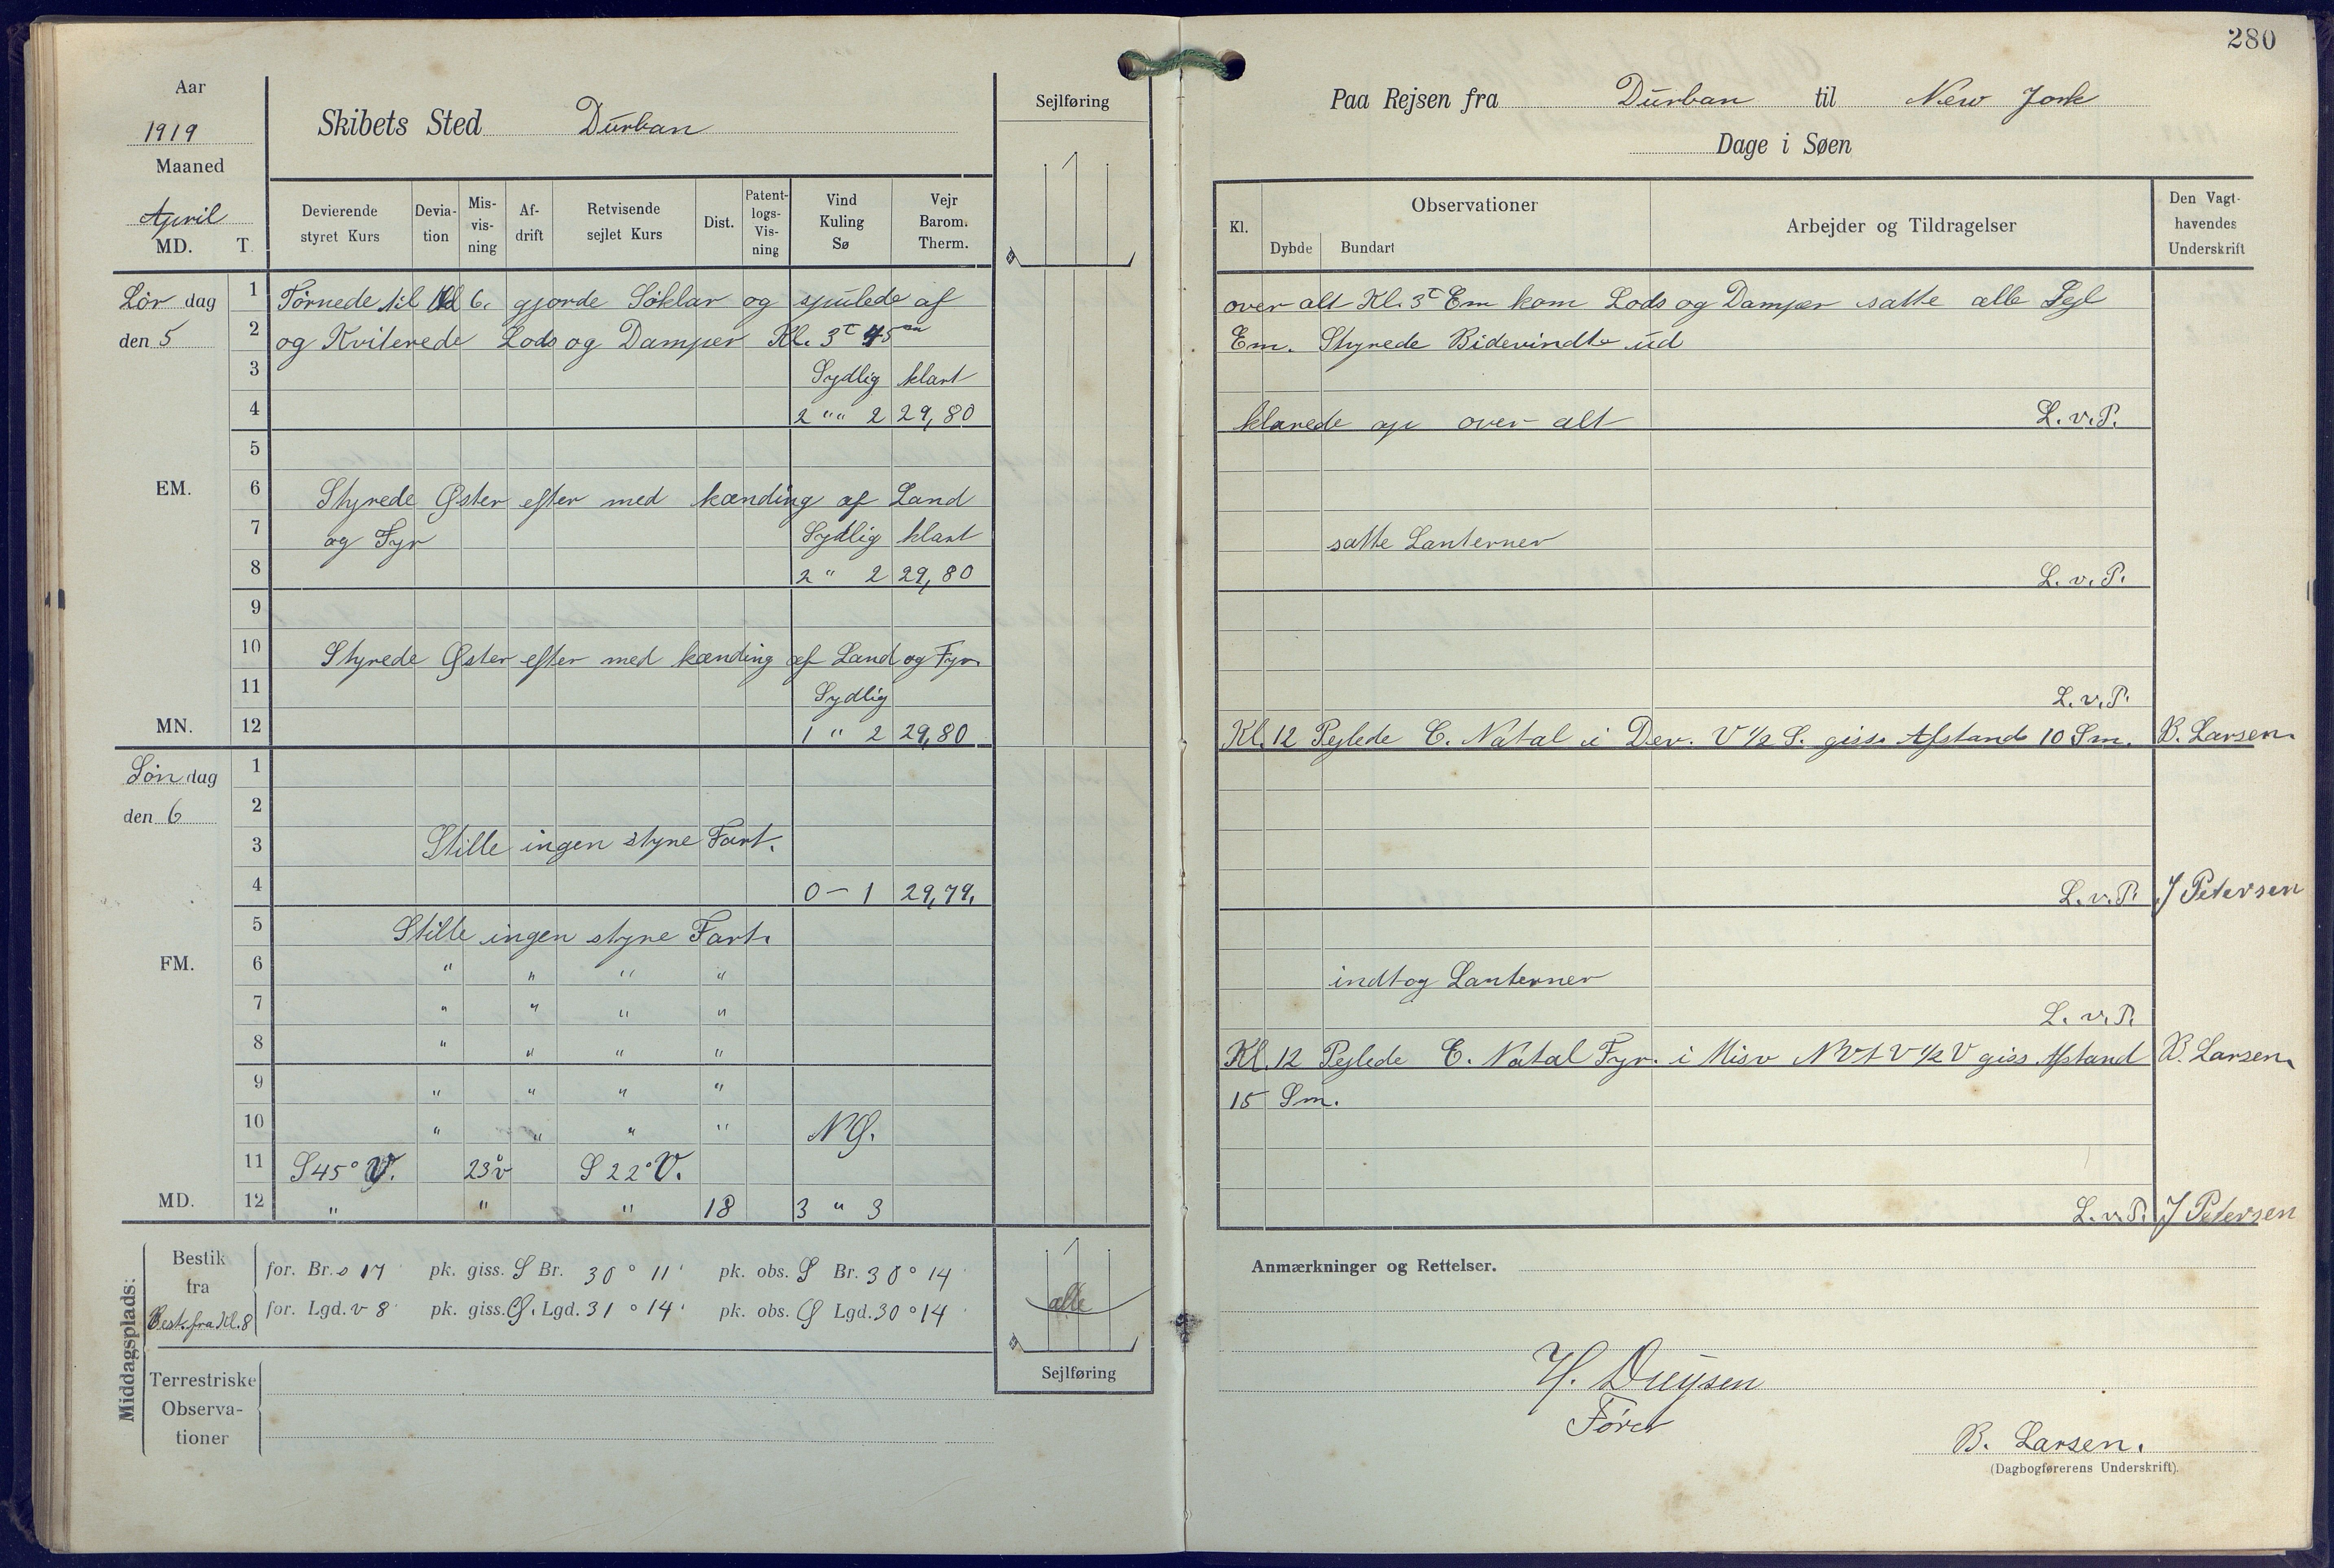 280
Aar
1919
Maaned
April
MD. T.
Skibets Sted Durban
Sejlføring
Devierende styret Kurs
Deviation
Misvisning
Afdrift
Retvisende sejlet Kurs
Dist.
Patentlogs-Visning
Vind Kuling Sø
Vejr Barom. Therm.
Lör dag
den 5
1 Törnede til Kl 6. gjorde Söklar og spulede af
2 og Kviterede Lods og Damper Kl. 3 T 45 m
3 Sydlig klart
4 2 " " 2 29,80
5
EM. 6 Styrede Øster efter med kænding af Land
7 og Fyr Sydlig klart
8 2 " 2 29,80
9
10 Styrede Øster efter med kænding af Land og Fyr.
11 Sydlig
MN. 12 1 " 2 29,80
Sön dag
den 6
1
2
3 Stille ingen styre Fart.
4 0 – 1 29,79.
5 Stille ingen styre Fart.
FM. 6 " " " "
7 " " " "
8 " " " "
9 " " " "
10 " " " " NØ.
11 S 45° V. 23° v S 22° V.
MD. 12 " " " 18 3 " 3
Middagsplads:
Bestik fra Best. fra Kl. 8
for. Br. s 17' pk. giss. S Br. 30° 11' pk. obs. S Br. 30° 14'
for. Lgd. v 8' pk. giss. Ø. Lgd. 31° 14' pk. obs. Ø Lgd. 30° 14'
alle
Sejlføring
Terrestriske
Observa-
tioner
Paa Rejsen fra Durban til New York
Dage i Søen
Kl.
Observationer
Dybde Bundart
Arbejder og Tildragelser
Den Vagt-
havendes
Underskrift
over alt Kl. 3 T Em kom Lods og Damper satte alle Sejl
Em. Styrede Bidevindt ud
klarede op over alt L. v. P.
satte Lanterner
L. v. P.
L. v. P.
Kl. 12 Pejlede C. Natal i Dev. V ½ S. giss. Afstand 10 Sm. B. Larsen.
L. v. P. J Petersen
indtog Lanterner
L. v. P.
Kl. 12 Pejlede C. Natal Fyr. i Misv NVtV ½ V giss Afstand B. Larsen.
15 Sm.
L. v. P. J Petersen
Anmærkninger og Rettelser.
H. Duysen
Fører
B. Larsen.
(Dagbogførerens Underskrift).